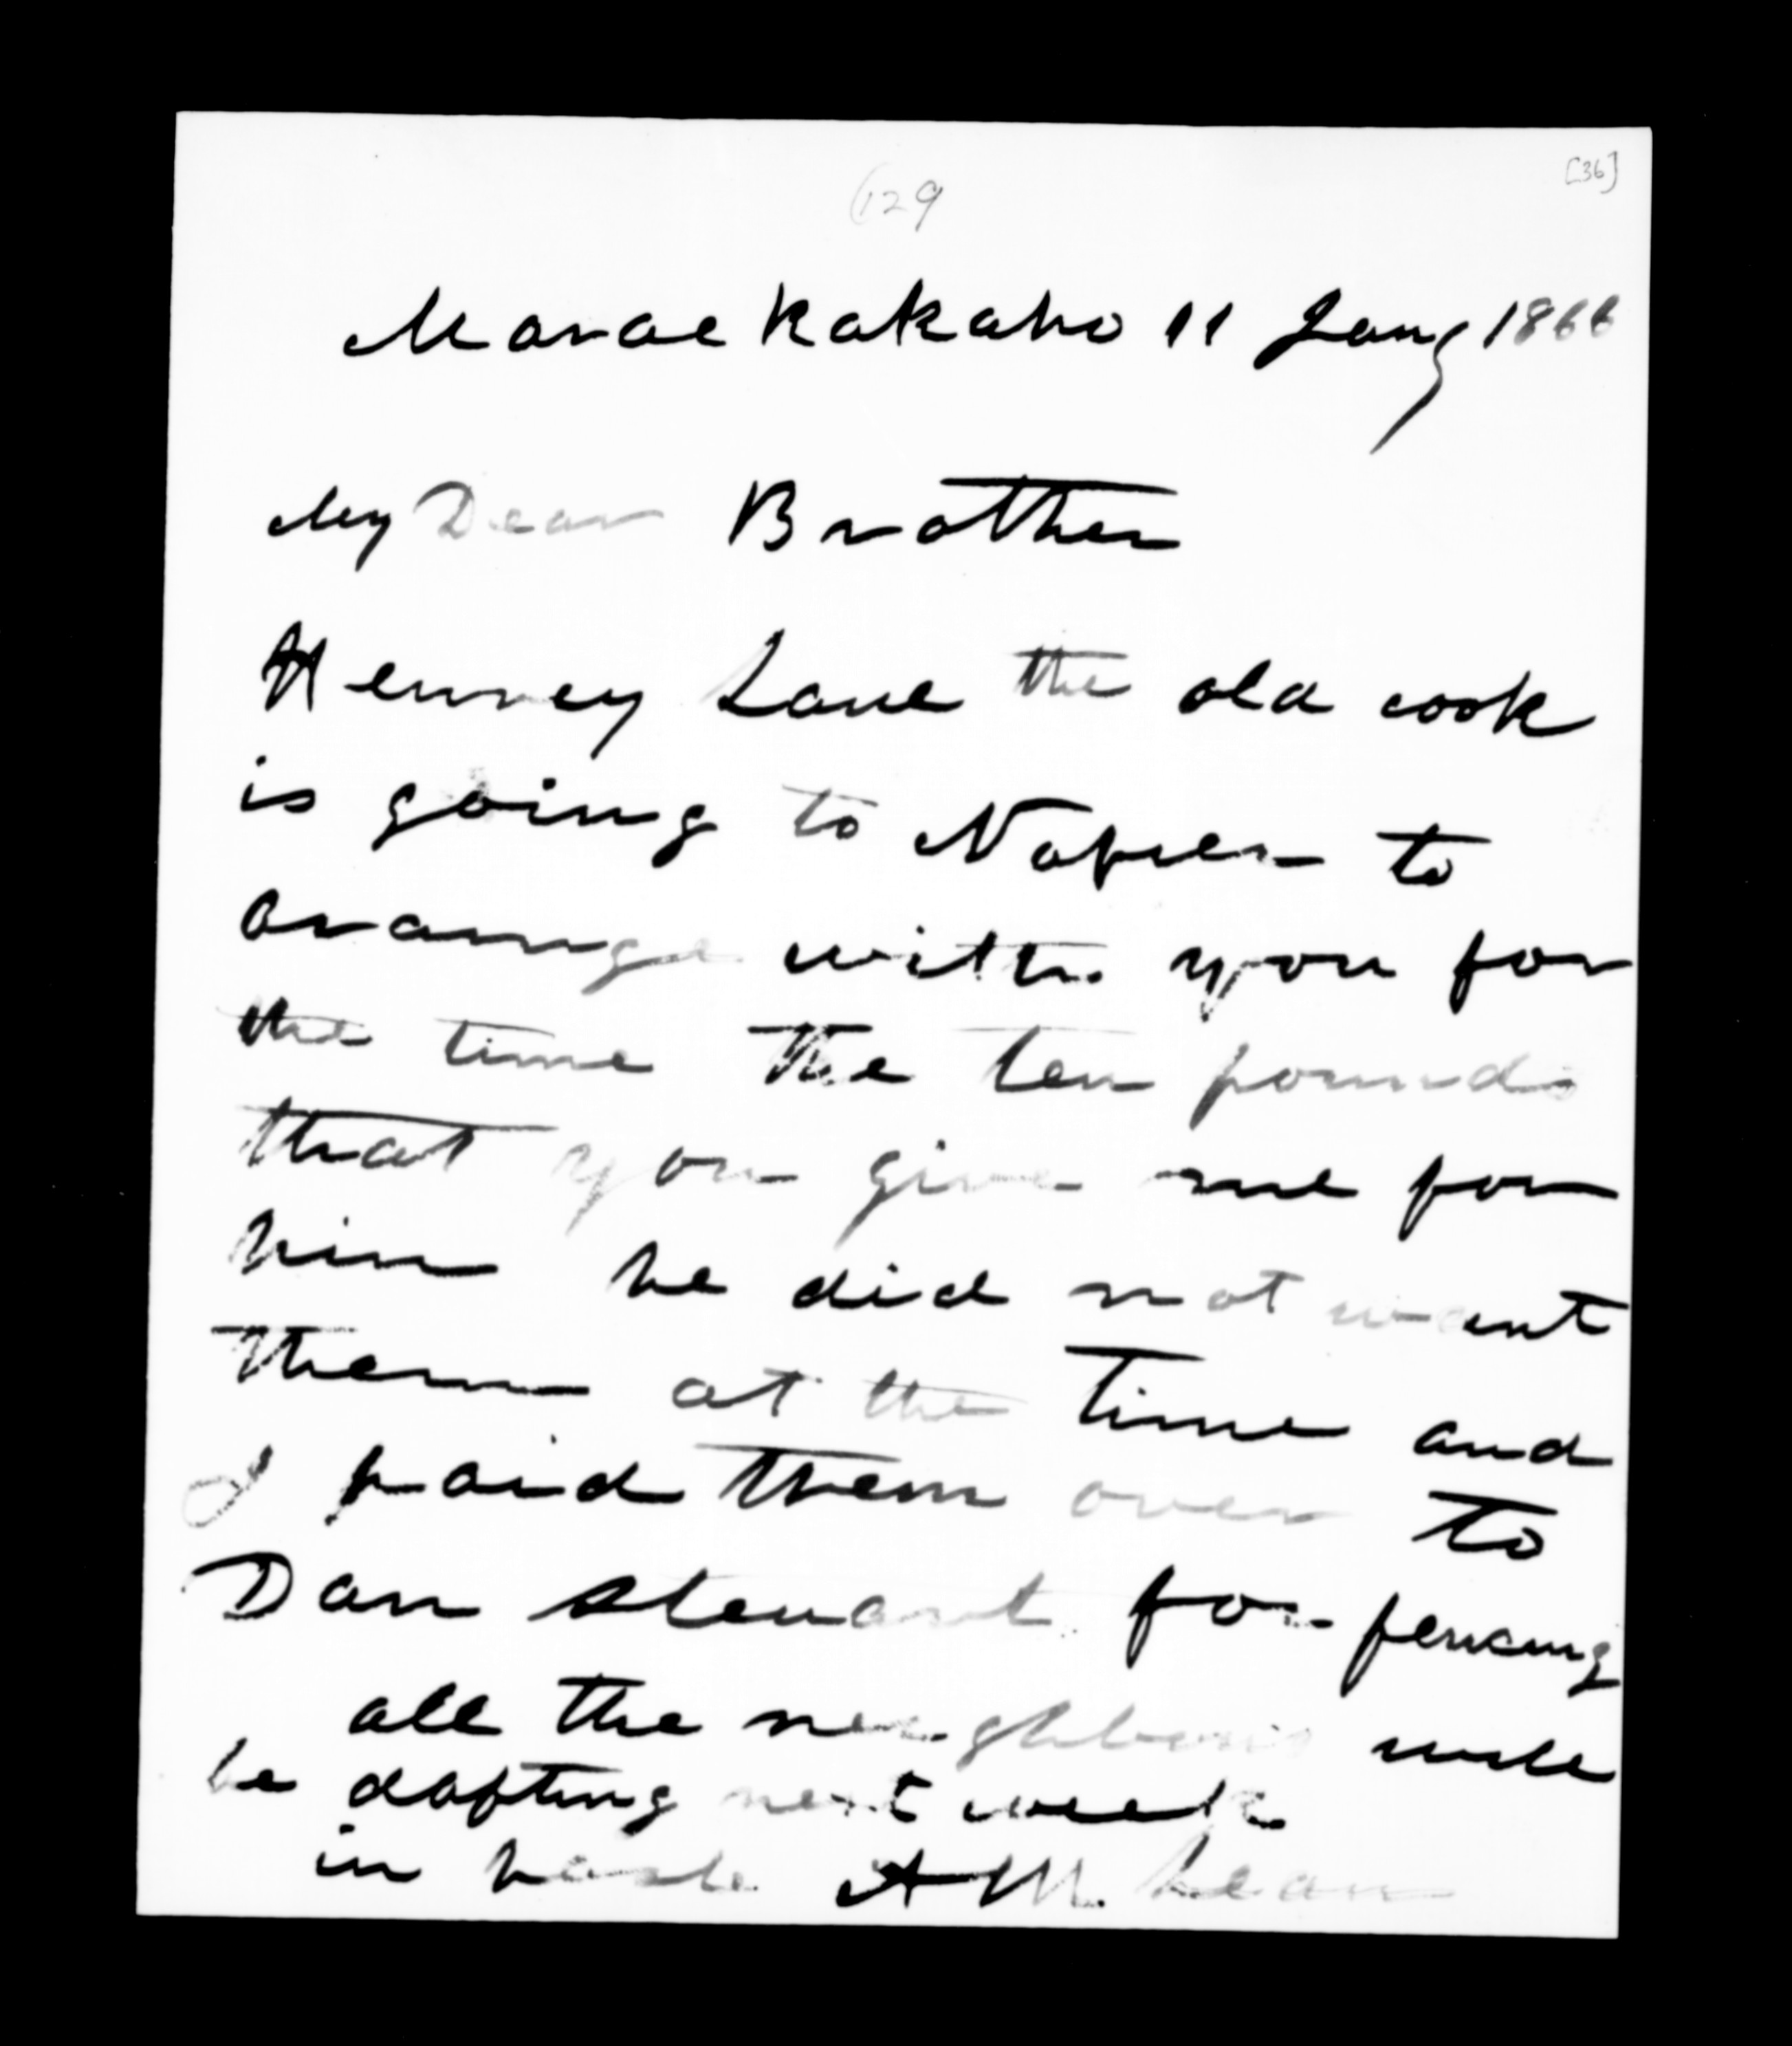 (129
[36]
Maraekakaho 11 Jany 1866
My Dear Brother
Henney Lane the old cook
is going to Napier to
arange with you for
the time the ten pounds
that you give me for
him he did not want
them at the time and
I paid them over to
Dan Stewart for fencing
all the neighbours will
be dafting next week
in haste A McLean